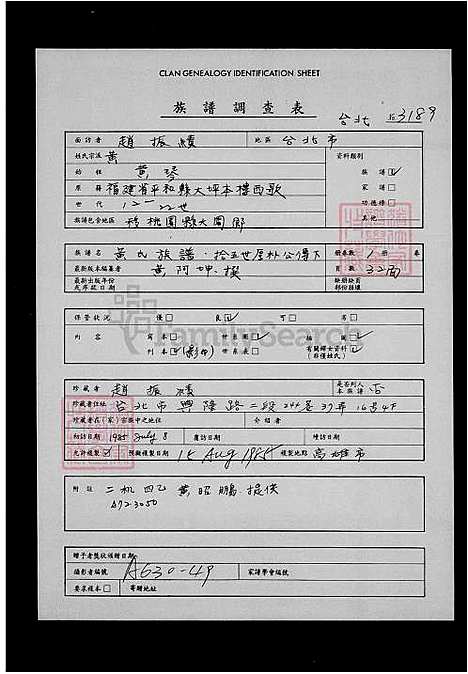 CLAN GENEALOGY IDENTIFICATION SHEET
族譜調查表
台北 3189
面訪者 趙振績 地區 台北市
姓氏宗派 黃 資料類別
始祖 黃琴 族譜
原籍 福建省平和縣大坪本樓西歌 家譜
世代 12—22世 功德榜
族譜包含地區 桃園縣大園鄉 其他
族譜名 黃氏族譜.拾五世厚朴公傳下 冊卷數 1 冊 卷
最新版本編纂者 黃阿坤撰 頁數 32面
最新出版年份或序款日期 缺冊缺頁部份註續
保管狀況 優 良 可 劣
內容 寫本 世系圖 插圖
刊本 (影印) 世系表 有關婦女資料(非僅姓氏)
FamilySearch
珍藏者 趙振績 是否列入本族譜 否
珍藏者住址 台北市興隆路二段244巷37弄16号4F
珍藏者在(家)宗族中之地位 介紹者
初訪日期 1985 July 8 複訪日期 增訪日期
允許複製 預擬複製日期 15 Aug 1985 複製地點 高雄市
附註 二机四乙 黃昭鵬.提供
A72-3050
贈予者獎狀頒贈日期
攝影者編號 A630-49 家譜學會編號
要求複本 寄贈地址